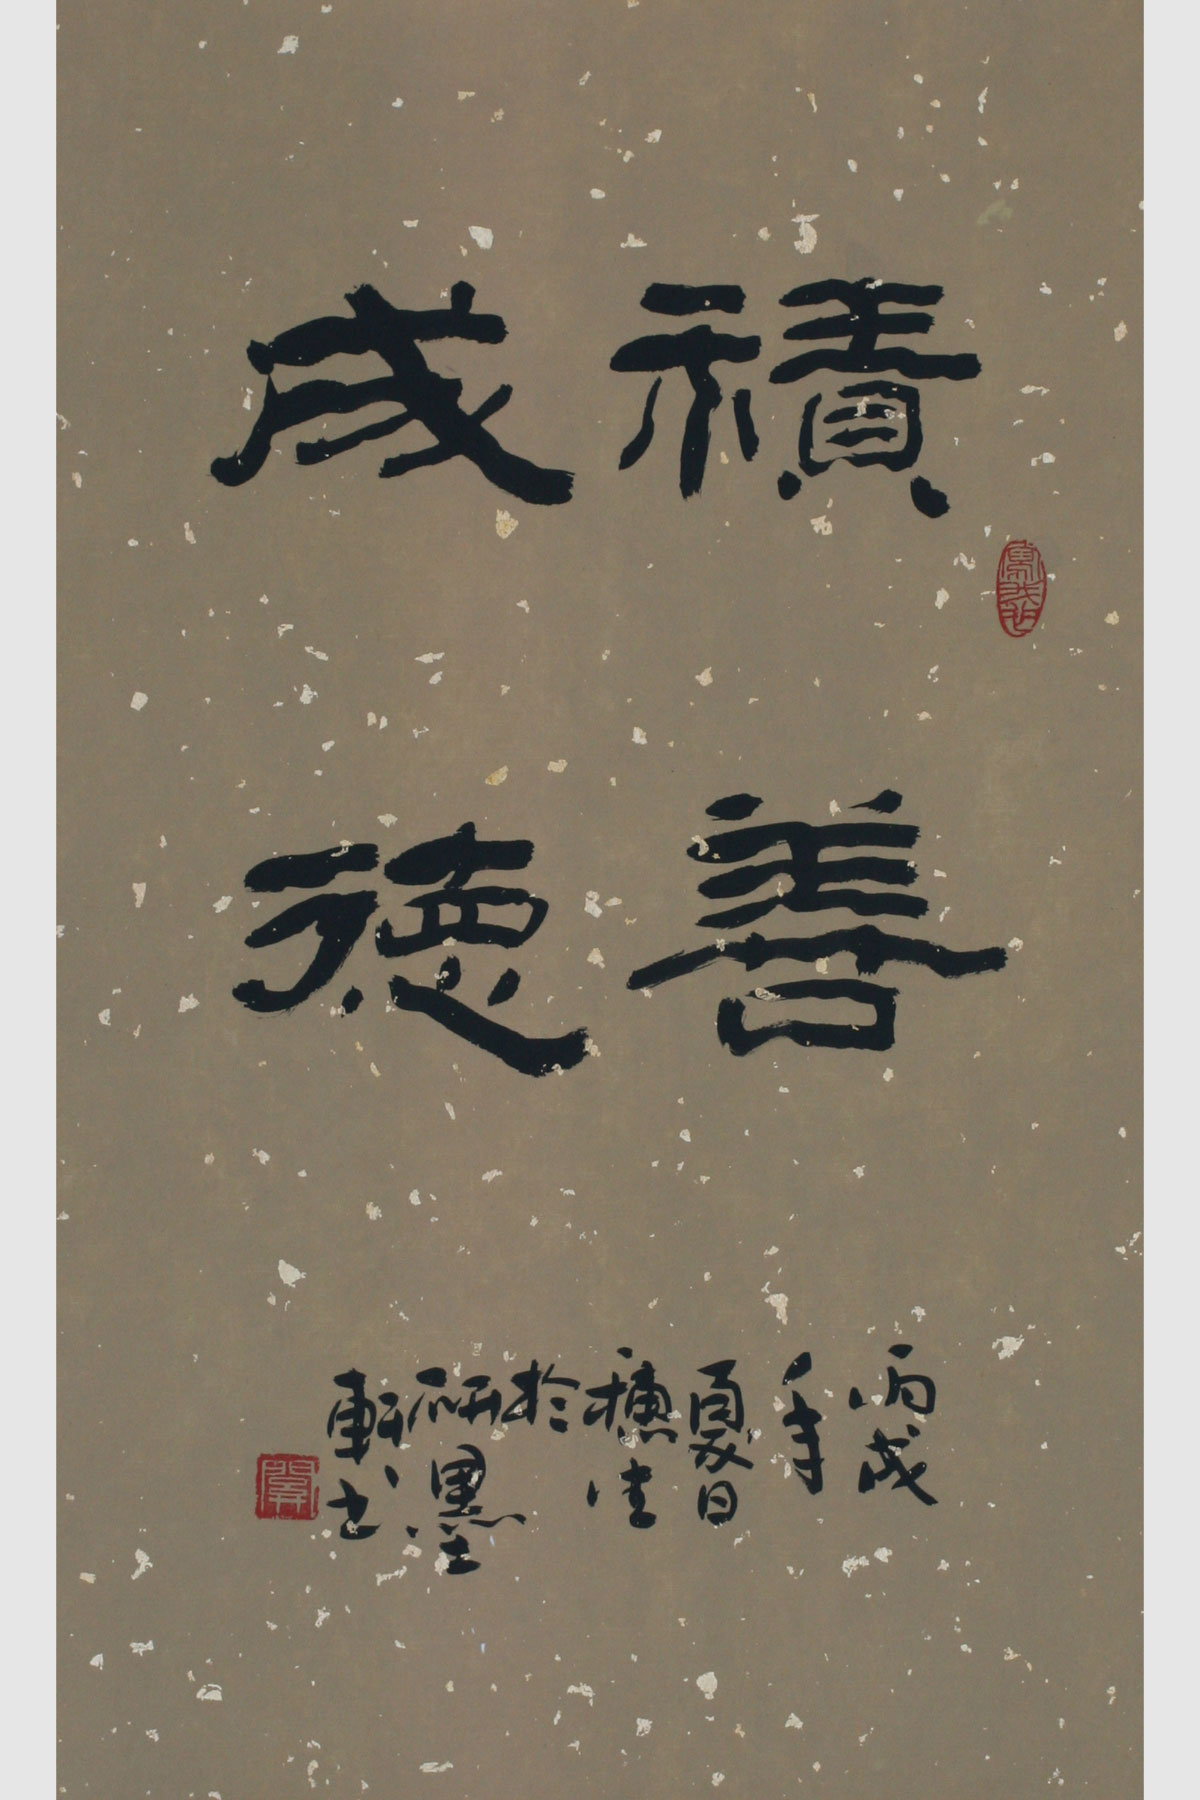 積善
成德
丙戌
年
夏日
穗生
於
研墨
軒書